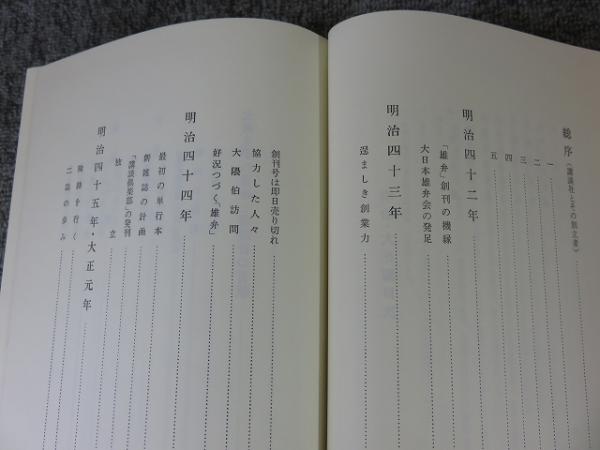 総序（講談社とその創立者）
一
二
三
四
五
明治四十二年
「雄弁」創刊の機縁
大日本雄弁会の発足
明治四十三年
逞ましき創業力
創刊号は即日売り切れ
協力した人々
大隈伯訪問
好況つづく「雄弁」
明治四十四年
最初の単行本
新雑誌の計画
「講談倶楽部」の発刊
独立
明治四十五年・大正元年
険路を行く
二誌の歩み